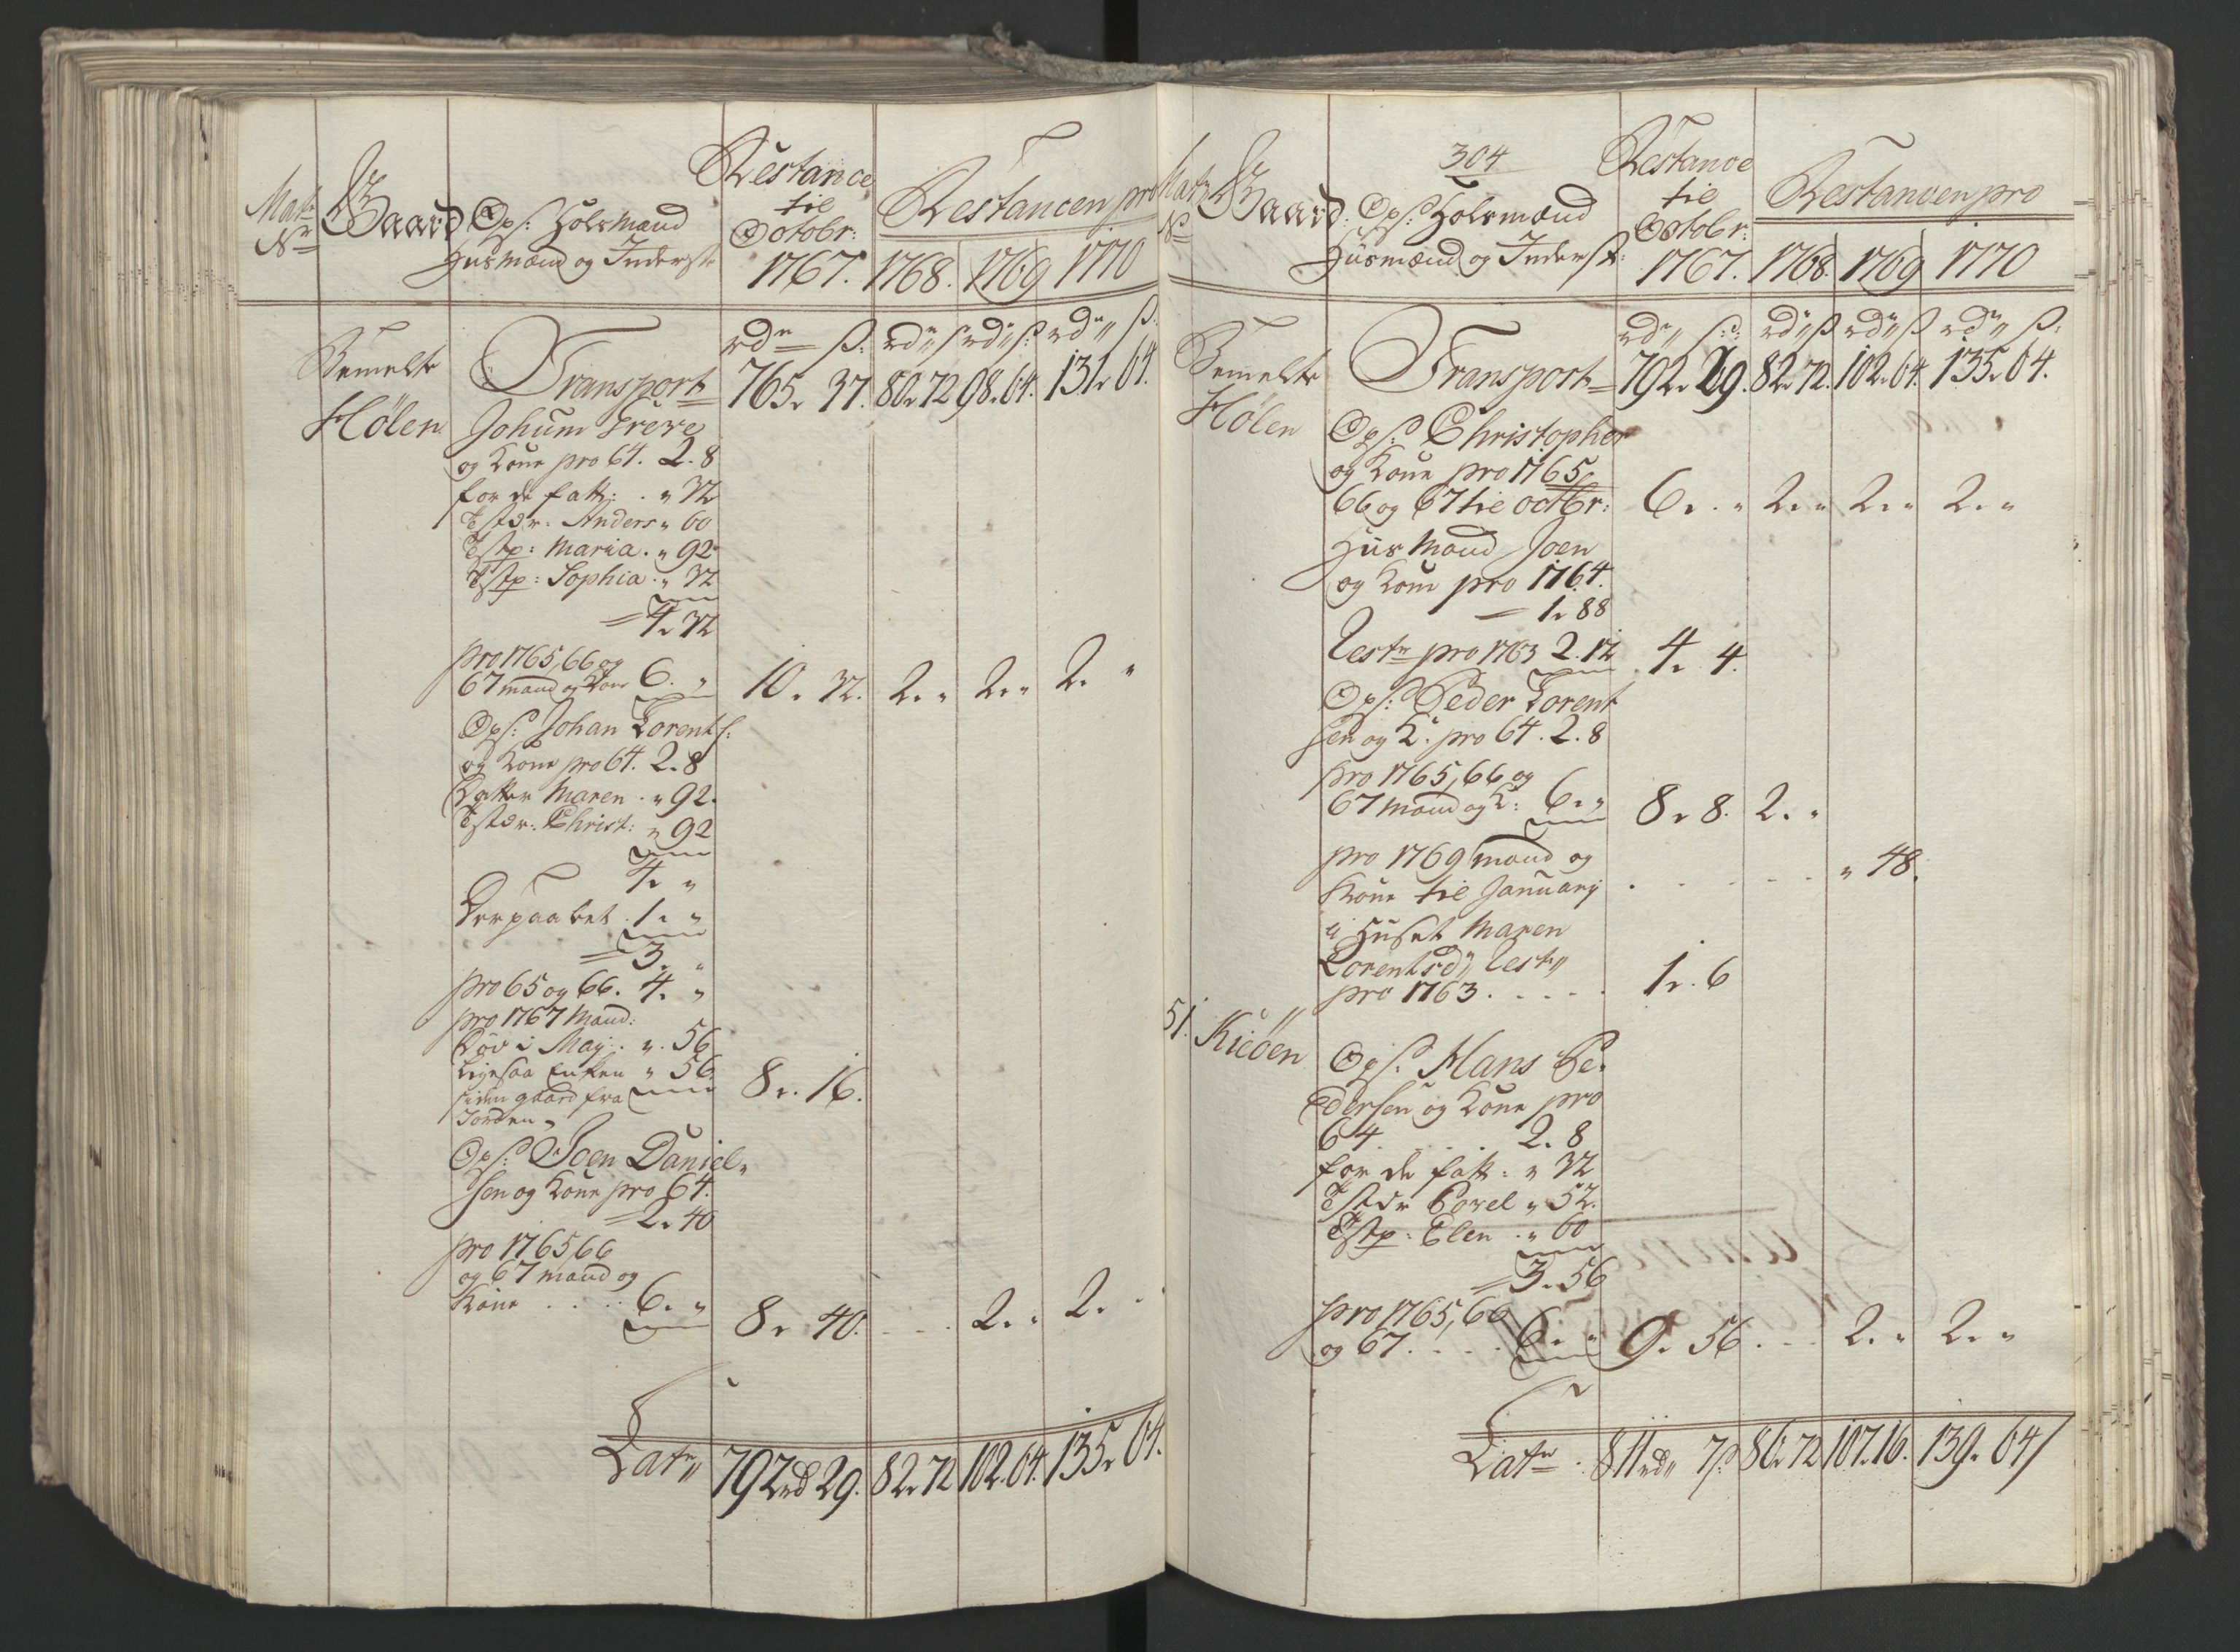 Matr Nr Gaard Ops: Holsmænd Husmænd og Inderste Restance til Octobr: 1767. Restancen pro 1768. 1769 1770
rdr ß: rdr ß rdr ß: rdr ß:
Bemelte Hølen Transport 765. 37. 80. 72 98. 64. 131. 64.
Johum Trere
og Kone pro 64. 2. 8
for de fatt: . " 32
Tstdr. Anders " 60
Tstp: Maria. " 92
Tstp: Sophia. " 32
= 4. 32
pro 1765, 66 og
67 mand og Kone 6. " 10. 32. 2. " 2. " 2. "
Ops: Johan Lorents:
og Kone pro 64. 2. 8
Datter Maren . " 92.
Tstdr. Christ: " 92
4. "
Derpaa bet. 1. "
= 3. "
pro 65 og 66. 4. "
pro 1767 Mand:
Død i Maj: . ". 56
ligesaa Enken " 56
siden gaard fra 8. 16.
Jorden,
Ops: Joen Daniel-
sen og Kone pro 64.
= 2. 40
pro 1765, 66
og 67 mand og
Kone . . . . 6. " 8. 40. . . . 2. " 2. "
Latr 792 rd 29. 82. 72 102. 64. 135. 64.
304
Matr Nr Gaard. Ops: Holsmænd Husmænd og Inderst: Restance til Octobr: 1767. Restancen pro 1768. 1769 1770
rdr ß: rdr ß rdr ß rdr ß.
Bemelte Hølen Transport 792. 29. 82. 72. 102. 64. 135. 64.
Ops: Christopher
og Kone pro 1765,
66 og 67 til octbr: 6. . " 2. " 2. " 2. "
Hus Mand Joen
og Kone pro 1764.
= 1. 88
Restr pro 1763 2. 12 . 4. 4.
Ops: Peder Lorent
sen og K: pro 64. 2. 8
pro 1765, 66 og
67 mand og K: 6. " 8. 8. 2. "
pro 1769 mand og
Kone til January . . . . . . " 48.
i Huset Maren
Lorentsdr Restr
pro 1763. . . . . 1. 6
51. Kieøen Ops. Hans Pe-
dersen og Kone pro
64 . . . . 2. 8
for de fatt: " 32
Tstdr Povel " 52.
Tstp: Elen . " 60
= 3. 56
pro 1765, 66
og 67. . . . 6. " 9. 56. . . 2. " 2. "
Latr . 811 rdr 7 ß 86. 72 107. 16. 139. 64